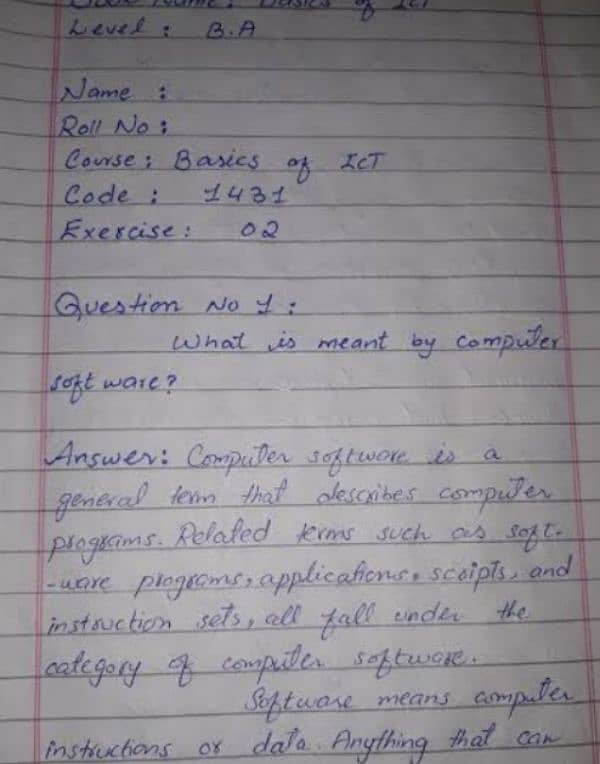 Book Name: Basics of ICT
Level : B.A
Name :
Roll No :
Course : Basics of ICT
Code : 1431
Exercise : 02
Question No 1 :
What is meant by computer
soft ware?
Answer: Computer software is a
general term that describes computer
programs. Related terms such as soft-
-ware programs, applications, scripts, and
instruction sets, all fall under the
category of computer software.
Software means computer
instructions or data. Anything that can